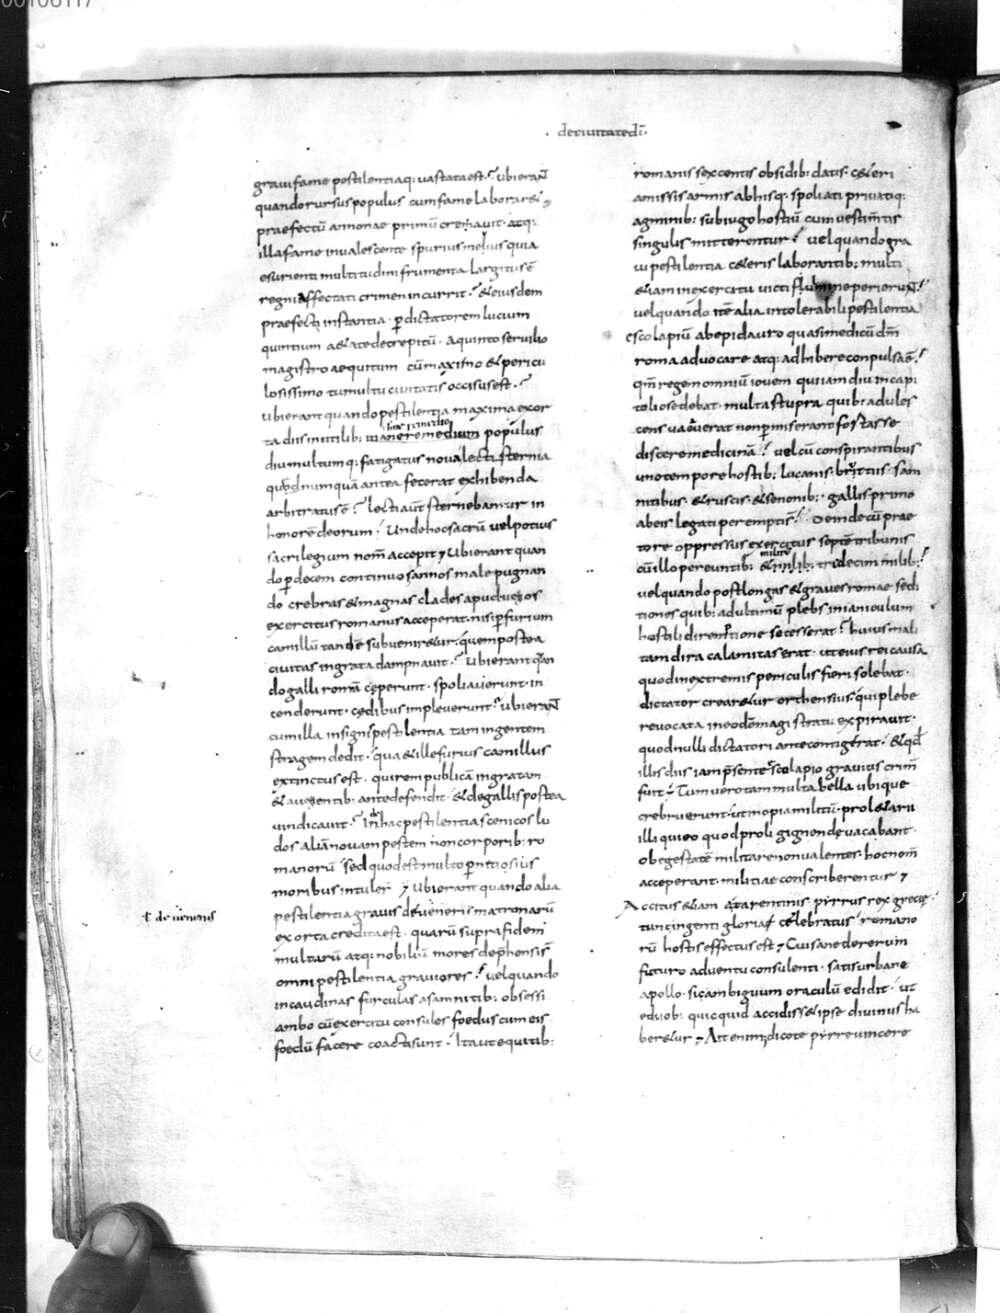 00106117
deciuitatedī·
graui fame pestilentiaq; uastata est; Vbi eran̄
quando rursus populus cum fame laboraret;
praefectū annonae primū creauit· atq;
illa fame inualescente spurius melius quia
esurienti multitudini frumenta largitus ē
regni affectati crimen incurrit; & eiusdem
praefecti instantia· p dictatorem lucium
quintium aetate decrepitū· a quinto seruilio
magistro aequitum cū maximo & pericu
losissimo tumultu ciuitatis occisus est;
Vbi erant quando pestilentia maxima exor
ta diis inutilib; sine remedio
in ane remedium populus
diu multumq; fatigatus noua lectisternia
quod numquā antea fecerat exhibenda
arbitratus ē; lecti aūt sternebantur in
honorē deorum· Vnde hoc sacrū uel potius
sacrilegium nom̄ accepit; Vbi erant quan
do p decem continuos annos male pugnan
do crebras & magnas clades apud ueios
exercitus romanus acceperat· nisi p furium
camillū tandē subueniretur· quem postea
ciuitas ingrata dampnauit; Vbi erant quan
do galli romā ceperunt· spoliauerunt· in
cenderunt· cedibus impleuerunt; Vbi eran̄
cum illa insignis pestilentia tam ingentem
stragem dedit· qua & ille furius camillus
extinctus est· qui rem publicā ingratam
& a uegentib; ante defendit· & de gallis postea
uindicauit; In hac pestilentia scenicos lu
dos aliā nouam pestem non corporib; ro
manorū sed quod est multo pnitiosius
moribus intuler̄; Vbi erant quando alia
pestilentia grauis de ueneris matronarū
exorta credita est· quarū supra fidem
multarū atq; nobiliū mores dephensi sī
omni pestilentia grauiores; uel quando
in caudinas furculas a samnitib; obsessi
ambo cū exercitu consules foedus cum eis
foedū facere coacti sunt· Ita ut equitib;
t̄ de uenenis
romanis sexcentis obsidib; datis· ceteri
amissis armis abhisq; spoliati priuatiq;
agminib; sub iugo hostiū cum uestimtis
singulis mitterentur; uel quando gra
ui pestilentia ceteris laborantib; multi
etiam in exercitu uicti flumine perierun̄;
uel quando itē alia intolerabili pestilentia
escolapiū ab epidauro quasi medicū dm̄
roma aduocare atq; adhibere conpulsa ē;
qm̄ regem omniū iouem qui iam diu in capi
tolio sedebat· multa stupra quib; adules
cens uacauerat non pmiserant fortasse
discere medicinā; uel cū conspirantibus
uno tempore hostib; lucanis· bruttiis· sam
nitibus· etruscis· & senonib; gallis primo
ab eis legati peremptis; Deinde cū prae
tore oppressus exercitus septē tribunis
cū illo pereuntib; militū
& milib; tredecim milib;
uel quando post longas & graues romae sedi
tiones quib; ad ultimū plebs in ianiculum
hostili direptione secesserat· huius mali
tam dira calamitas erat· ut eius rei causa
quod in extremis periculis fieri solebat·
dictator crearetur orthensius· qui plebe
reuocata in eodē magistratu expirauit·
quod nulli dictatori ante contigerat· & qd̄
illis diis iam psente escolapio grauius crim̄
fuit; Tum uero tam multa bella ubique
crebruerunt· ut inopia militū· proletarii
illi qui eo quod proli gignende uacabant·
ob egestatē militare non ualentes hoc nom̄
acceperant· militiae conscriberentur;
Accitus etiam a tarentinis pirrus rex grecie·
tunc ingenti gloria celebratus romano
rū hostis effectus est; Cui sane de rerum
futuro aduentu consulenti· satis urbane
apollo· sic ambiguum oraculū edidit· ut
e duob; quicquid accidisset ipse diuinus ha
beretur; At enim dico te pyrre uincere